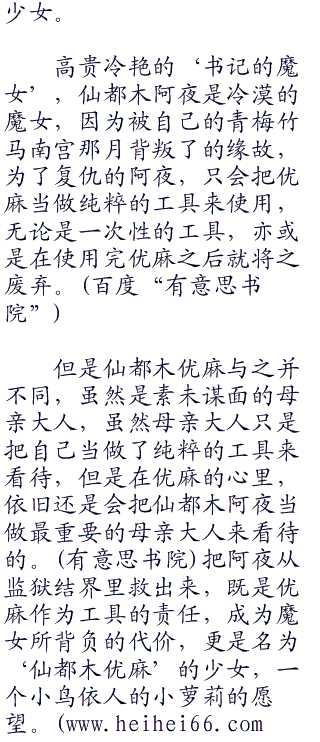 少女。
高贵冷艳的‘书记的魔
女’，仙都木阿夜是冷漠的
魔女，因为被自己的青梅竹
马南宫那月背叛了的缘故，
为了复仇的阿夜，只会把优
麻当做纯粹的工具来使用，
无论是一次性的工具，亦或
是在使用完优麻之后就将之
废弃。(百度“有意思书
院”)
但是仙都木优麻与之并
不同，虽然是素未谋面的母
亲大人，虽然母亲大人只是
把自己当做了纯粹的工具来
看待，但是在优麻的心里，
依旧还是会把仙都木阿夜当
做最重要的母亲大人来看待
的。(有意思书院)把阿夜从
监狱结界里救出来，既是优
麻作为工具的责任，成为魔
女所背负的代价，更是名为
‘仙都木优麻’的少女，一
个小鸟依人的小萝莉的愿
望。(www.heihei66.com